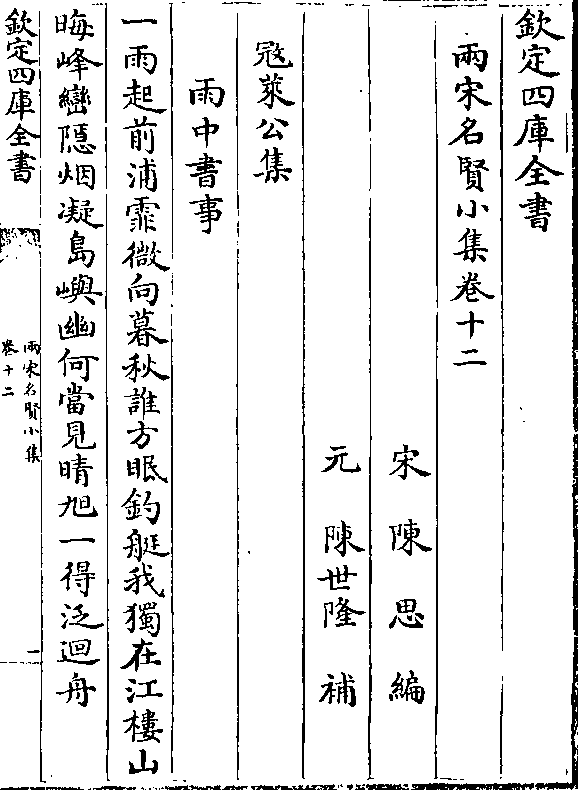 欽定四庫全書
兩宋名賢小集卷十二
宋 陳思 編
元 陳世隆 補
寇萊公集
雨中書事
一雨起前浦霏微向暮秋誰方眠釣艇我獨在江樓山
晦峰巒隠烟凝島嶼幽何當見晴旭一得泛迴舟
欽定四庫全書
兩宋名賢小集
卷十二
一